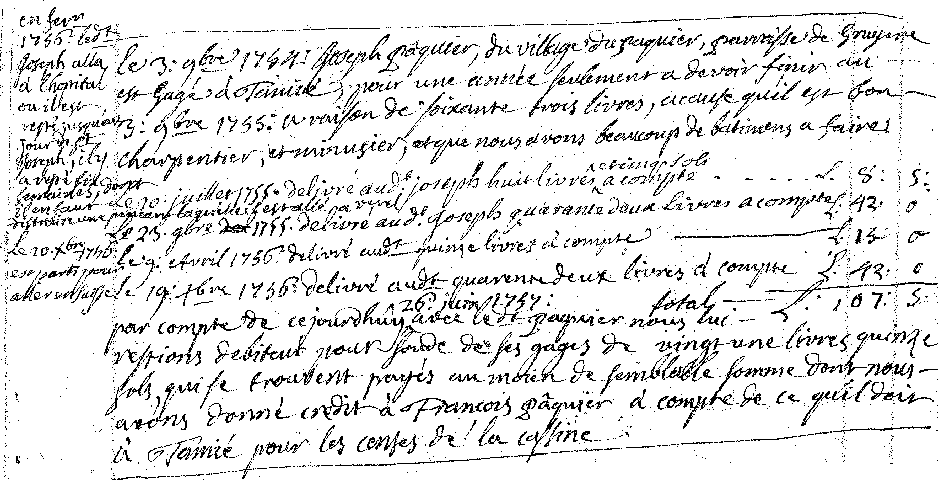 en fevr
1756 ledt
Joseph alla
a l'hopital
ou il est
resté jusquau
jour
Joseph, il y
a resté six
semaines, dont
il en faut
distraire une pendant laquelle il est allé a
Le 20 xbre 1756
est parti pour
aller en suisse
le 3: 9bre 1754: Joseph pâquier, du village du paquier, parroisse de Gruyere
est gagé à Tamié, pour une année seulement a devoir finir au
3: 9bre 1755: a raison de soixante trois livres, a cause quil est bon
charpentier, et minuzier, et que nous avons beaucoup de batimens a faire:
et cinq sols
Le 20: juillet 1755: delivré aud.t joseph huit livres a compte - - - - £ 8: 5:
Le 25: 9bre 1755: delivré aud.t Joseph quarante deux livres a compte £ 42: 0
Le 9: avril 1756: delivré audt quinze livres à compte £ 15 0
le 19: xbre 1756: delivré audt quarente deux livres à compte £: 42: 0
total £: 107: 5:
26: juin 1757:
par compte de cejourdhuy avec ledt pâquier nous lui
restions debiteur pour solde de ses gages de vingt une livres quinze
sols, qui se trouvent payés au moien de semblable somme dont nous
avons donné credit à François pâquier à compte de ce quil doit
à Tamié pour les censes de la cassine